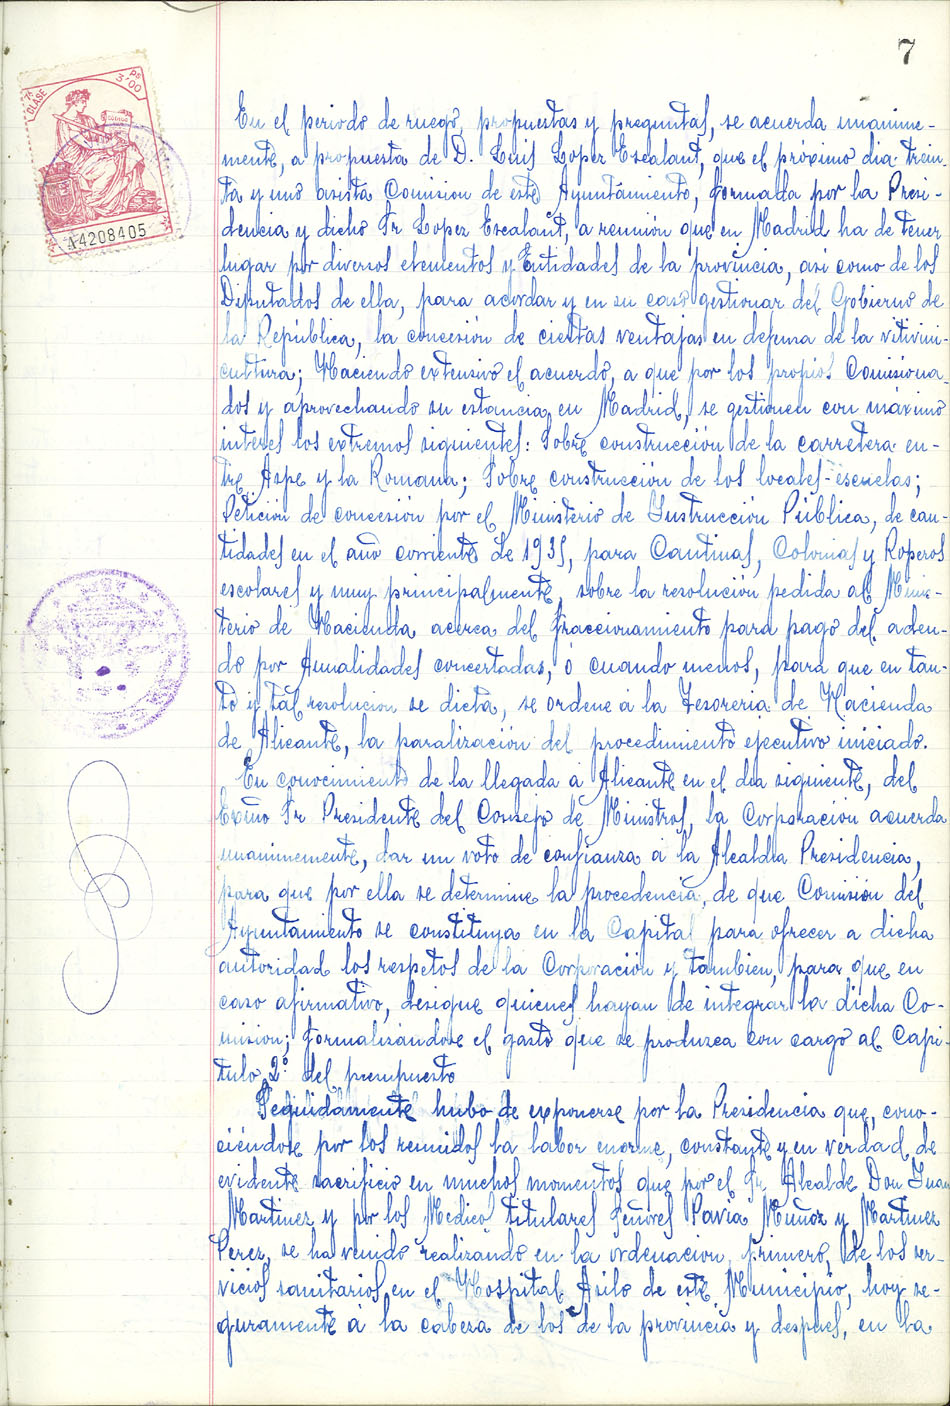 7
7ª CLASE
Ps 3'00
A4208405
En el periodo de ruegos, propuestas y preguntas, se acuerda unanime-
mente, a propuesta de D. Luis Lopez Escalant, que el próximo dia trein-
ta y uno asista Comision de este Ayuntamiento, formada por la Presi-
dencia y dicho Sr Lopez Escalant, a reunión que en Madrid ha de tener
lugar por diversos elementos y Entidades de la provincia, asi como de los
Diputados de ella, para acordar y en su caso gestionar del Gobierno de
la República, la concesión de ciertas ventajas en defensa de la vitivini-
cultura; Haciendo extensivo el acuerdo, a que por los propios Comisiona-
dos y aprovechando su estancia en Madrid, se gestionen con máximo
interes los extremos siguientes: Sobre construcción de la carretera en-
tre Aspe y la Romana; Sobre construcción de los locales-escuelas;
Petición de concesión por el Ministerio de Instrucción Pública, de can-
tidades en el año corriente de 1935, para Cantinas, Colonias y Roperos
escolares y muy principalmente, sobre la resolución pedida al Minis-
terio de Hacienda acerca del fraccionamiento para pago del adeu-
do por Anualidades concertadas, ó cuando menos, para que en tan-
to y tal resolucion se dicta, se ordene á la Tesoreria de Hacienda
de Alicante, la paralización del procedimiento ejecutivo iniciado.
En conocimiento de la llegada á Alicante en el dia siguiente, del
Exmo Sr Presidente del Consejo de Ministros, la Corporación acuerda
unanimemente, dar un voto de confianza a la Alcaldia Presidencia,
para que por ella se determine la procedencia, de que Comisión del
Ayuntamiento se constituya en la Capital para ofrecer a dicha
autoridad los respetos de la Corporación y tambien, para que en
caso afirmativo, designe quienes hayan de integrar la dicha Co-
mision; formalizándose el gasto que se produzca con cargo al Capi-
tulo 2º del presupuesto
Seguidamente hubo de exponerse por la Presidencia que, cono-
ciéndose por los reunidos la labor enorme, constante y en verdad de
evidente sacrificio en muchos momentos que por el Sr Alcalde Don Juan
Martinez y por los Medicos titulares Señores Pavia Muñoz y Martinez
Perez, se ha venido realizando en la ordenacion, primero, de los ser-
vicios sanitarios en el Hospital Asilo de este Municipio, hoy se-
guramente á la cabeza de los de la provincia y despues, en la